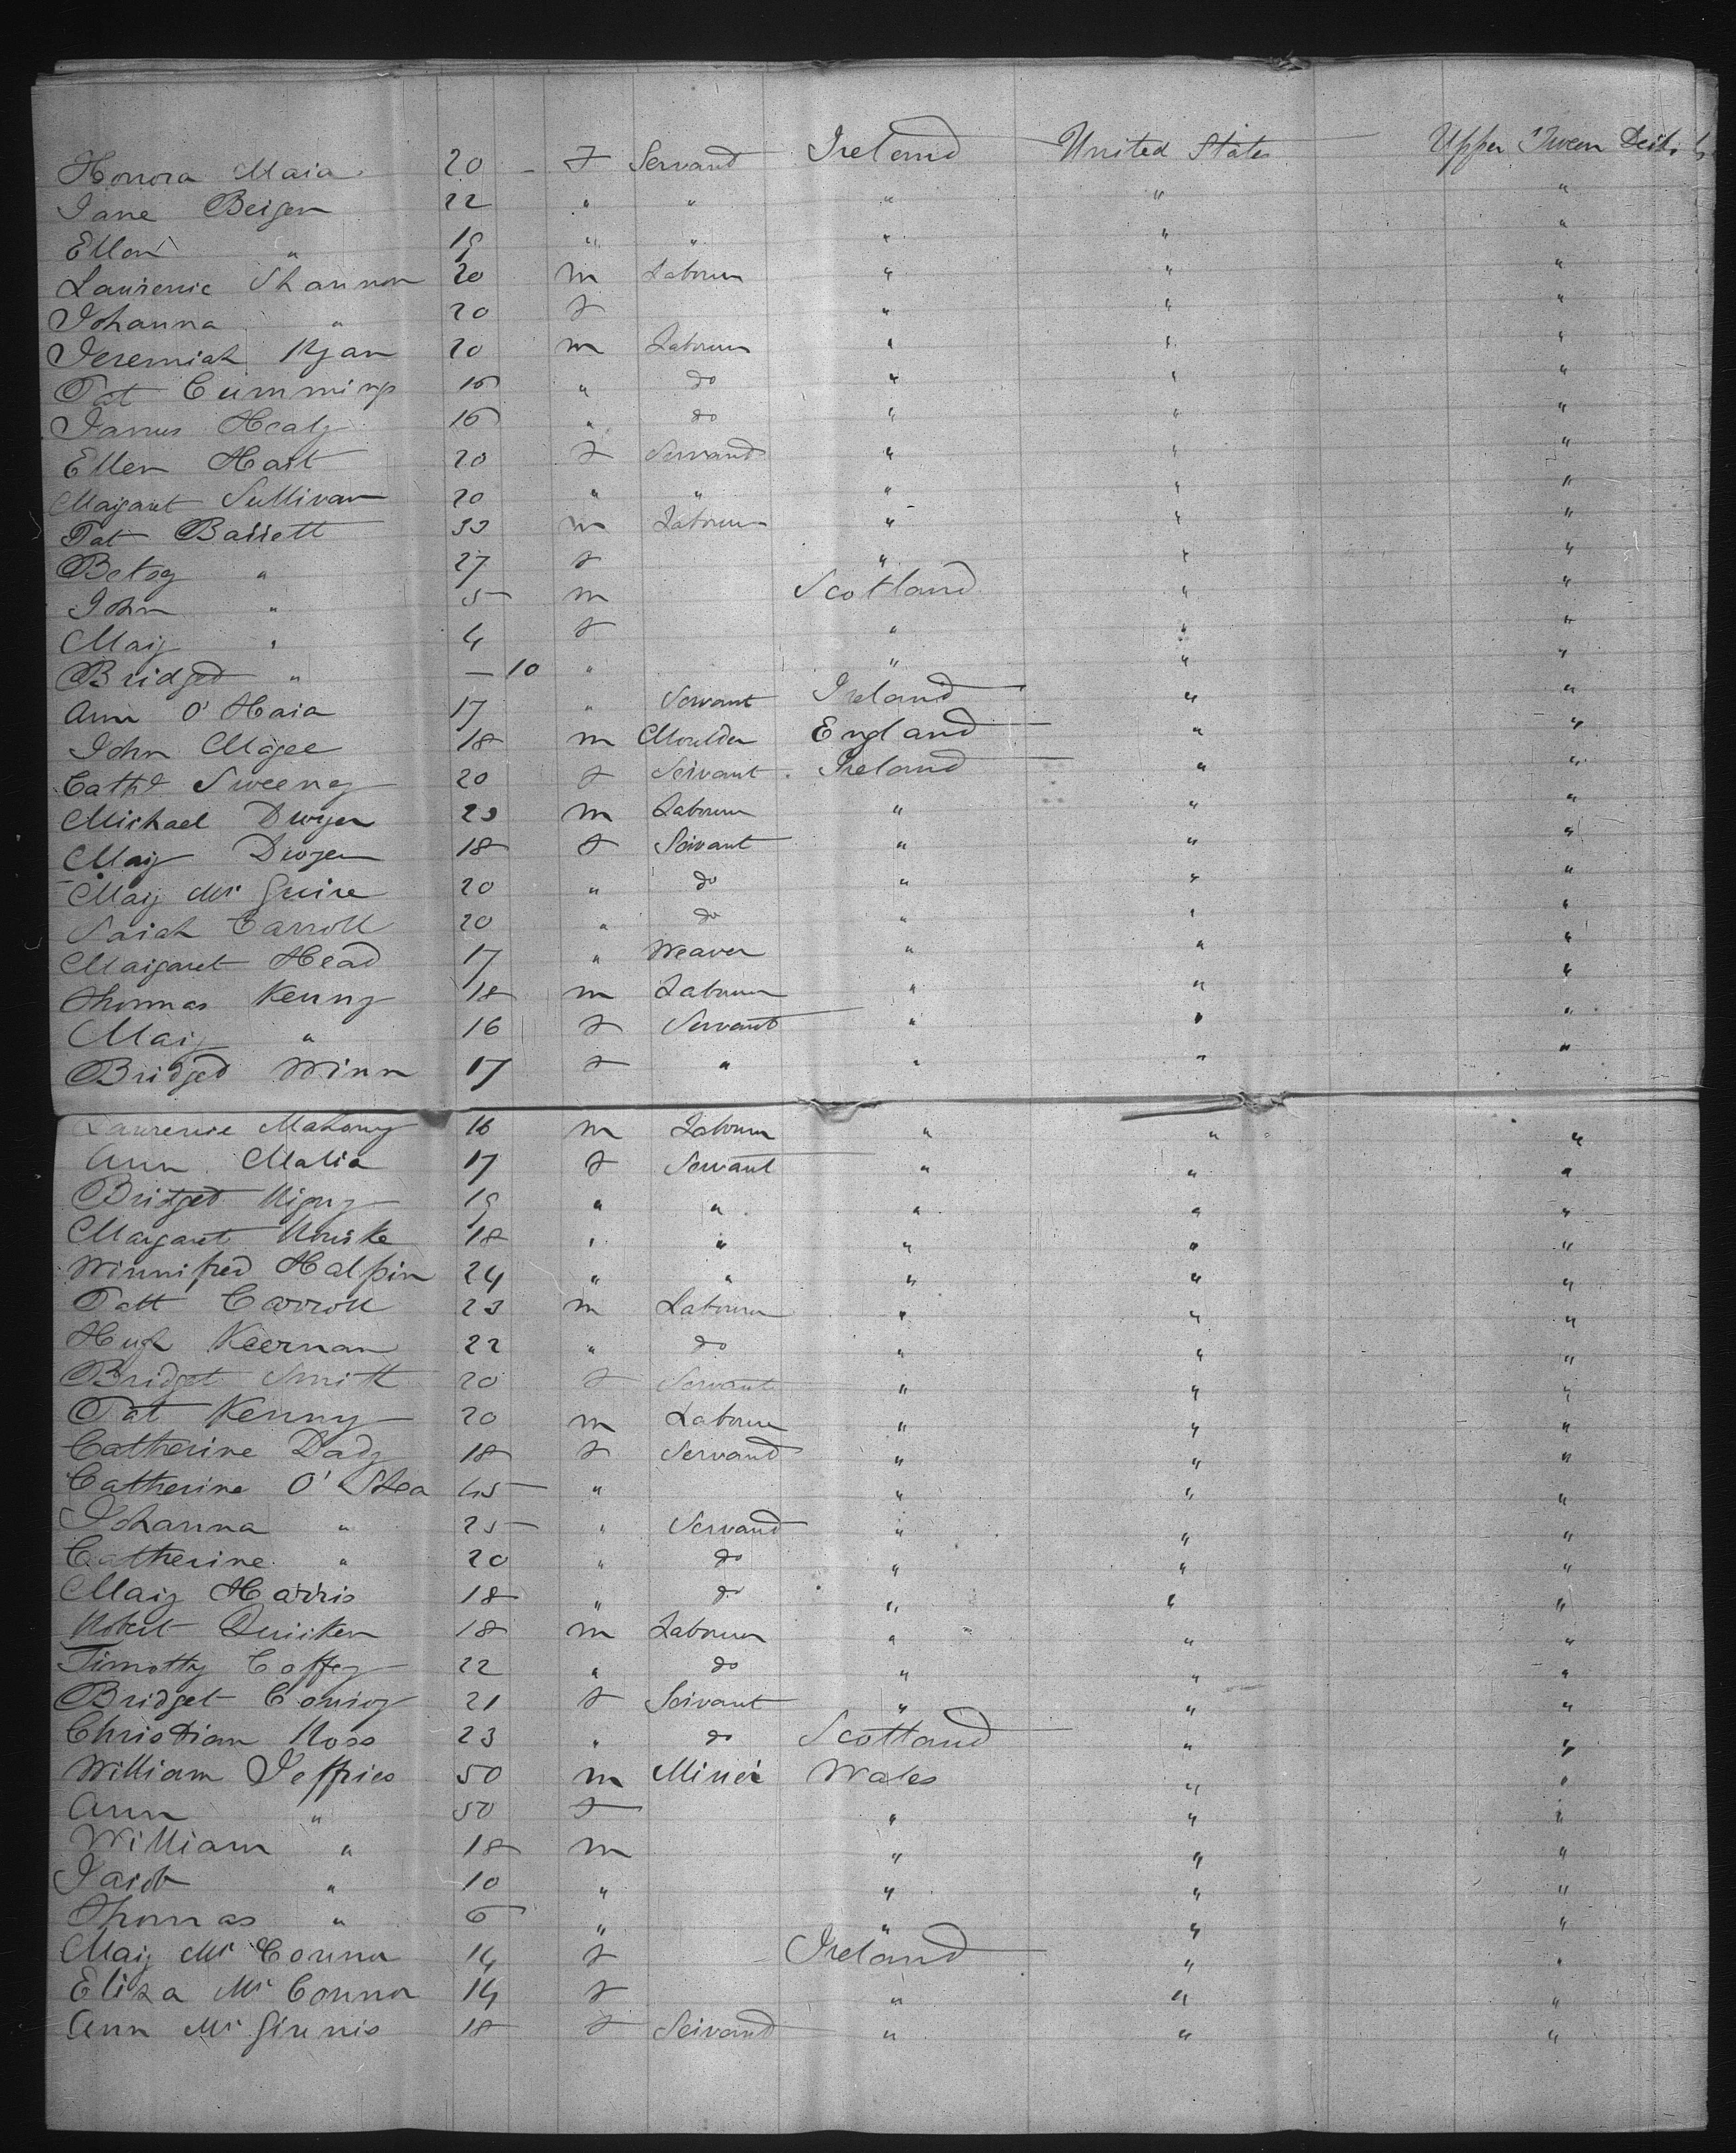 Honora Maia 20 - f Servand Ireland United States Upper Tween Deck
Jane Beigen 22 " " " " "
Ellen " 19 " " " " "
Laurence Shannon 20 m Labourer " " "
Johanna " 20 f " " "
Jeremiah Ryan 20 m Labourer " " "
Pat Cummings 16 " do " " "
James Healy 16 " do " " "
Ellen Hart 20 f Servand " " "
Margaret Sullivan 20 " " " " "
Pat Barrett 33 m Labourer " " "
Betsy " 27 f " " "
John " 5 m Scotland " "
Mary " 4 f " " "
Bridged " - 10 " " " "
Ann O'Hara 17 " Servant Ireland " "
John Magee 18 m Moulder England " "
Cathe Sweeney 20 f Servant Ireland " "
Michael Dwyer 23 m Labourer " " "
Mary Dwyer 18 f Servant " " "
Mary Mc Guire 20 " do " " "
Sarah Carroll 20 " do " " "
Margaret Head 17 " Weaver " " "
Thomas Kenny 18 m Labourer " " "
Mary " 16 f Servant " " "
Bridged Winn 17 f " " " "
Laurence Mahony 16 m Labourer " " "
Ann Malia 17 f Servant " " "
Bridged 19 " " " " "
Margaret 18 " " " " "
Winnifred Halpin 24 " " " " "
Patt Carroll 23 m Labourer " " "
Hugh Keernan 22 " do " " "
Bridget Smith 20 f Servant " " "
Pat Kenny 20 m Labourer " " "
Catherine Dady 18 f Servand " " "
Catherine O'Shea 45 " " " "
Johanna " 25 " Servand " " "
Catherine " 20 " do " " "
Mary Harris 18 " do " " "
Robert 18 m Labourer " " "
Timothy Coffey 22 " do " " "
Bridget Conroy 21 f Servant " " "
Christian Ross 23 " do Scotland " "
William Jeffries 50 m Miner Wales " "
Ann " 50 f " " "
William " 18 m " " "
Jacob " 10 " " " "
Thomas " 6 " " " "
Mary Mc Connor 14 f Ireland " "
Eliza Mc Connor 14 f " " "
Ann Mc Ginnis 18 f Servand " " "